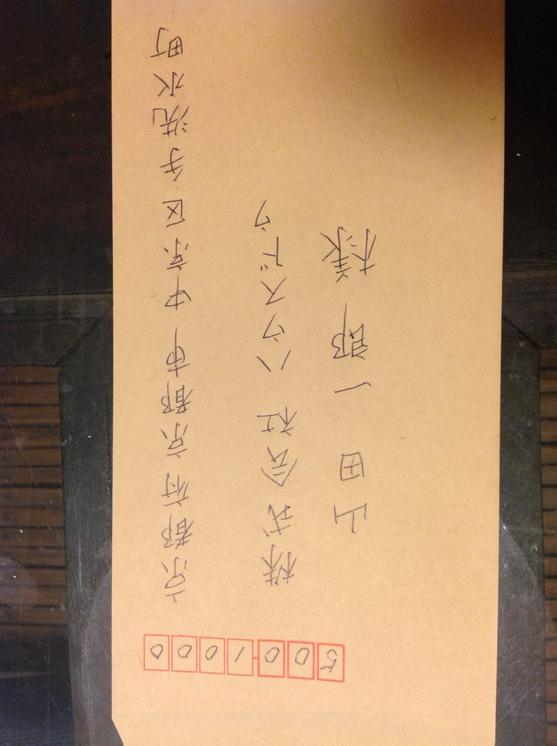 5001000
京都府京都市中京区手洗水町
株式会社ハウスドゥ
山田一郎様